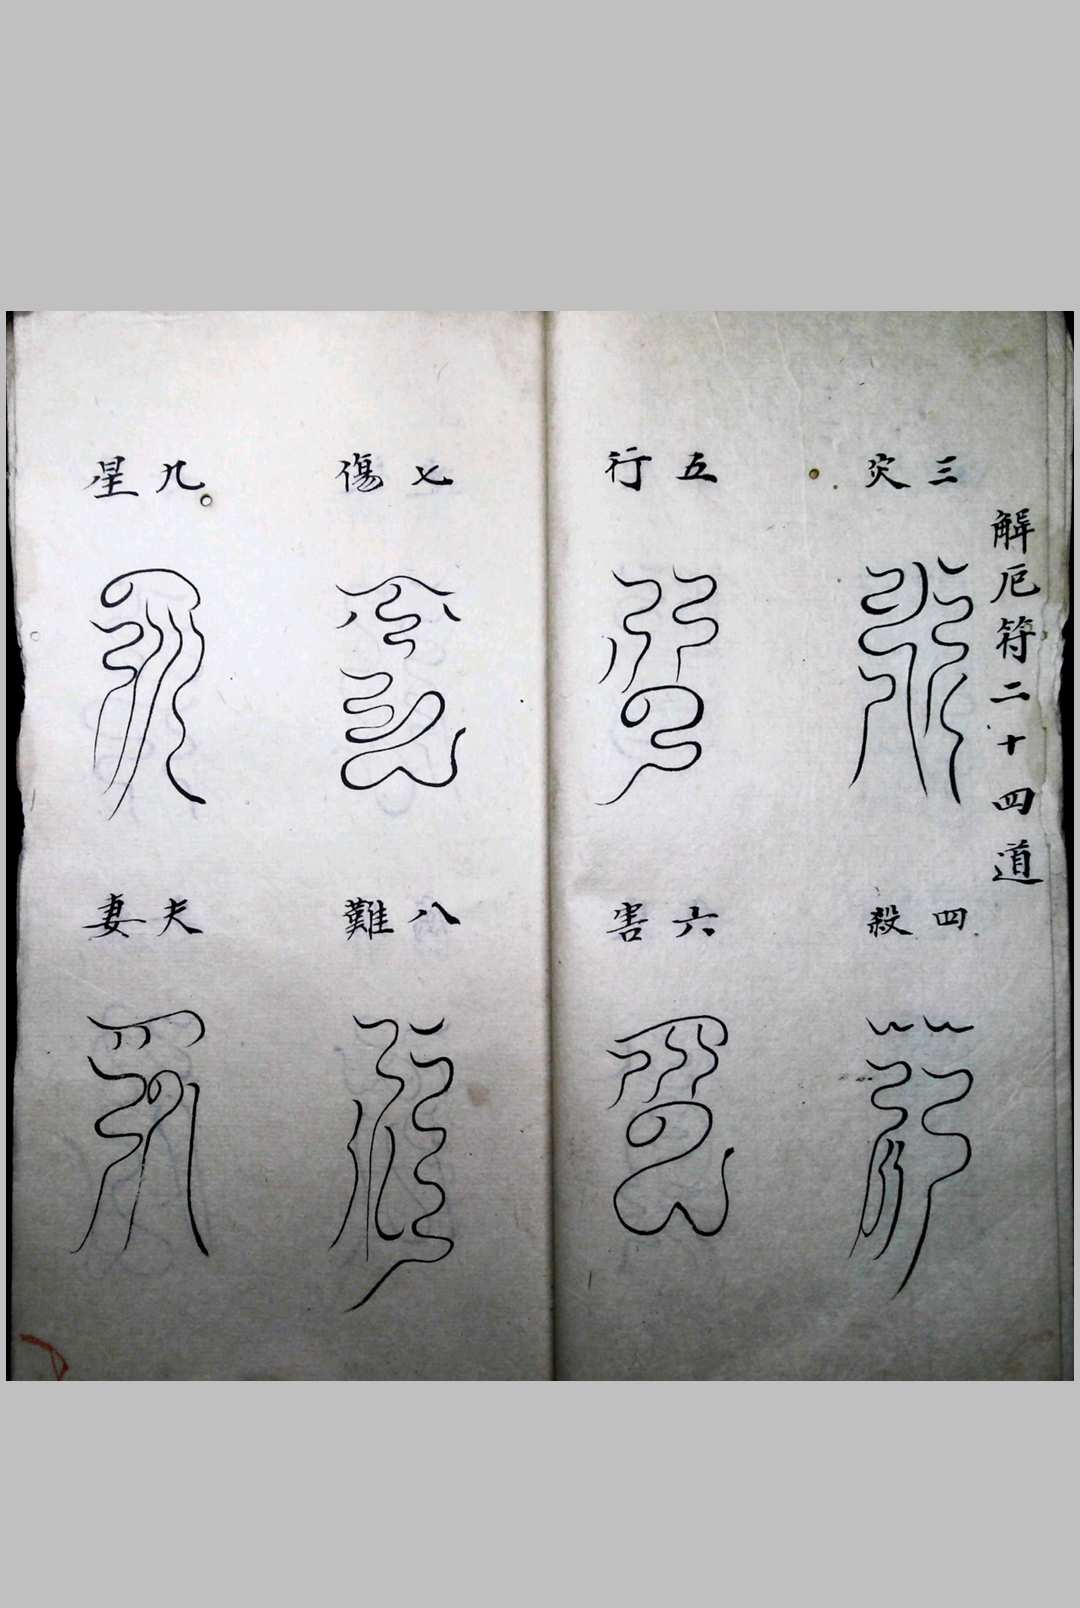 解厄符二十四道
三灾
四殺
五行
六害
七傷
八難
九星
夫妻